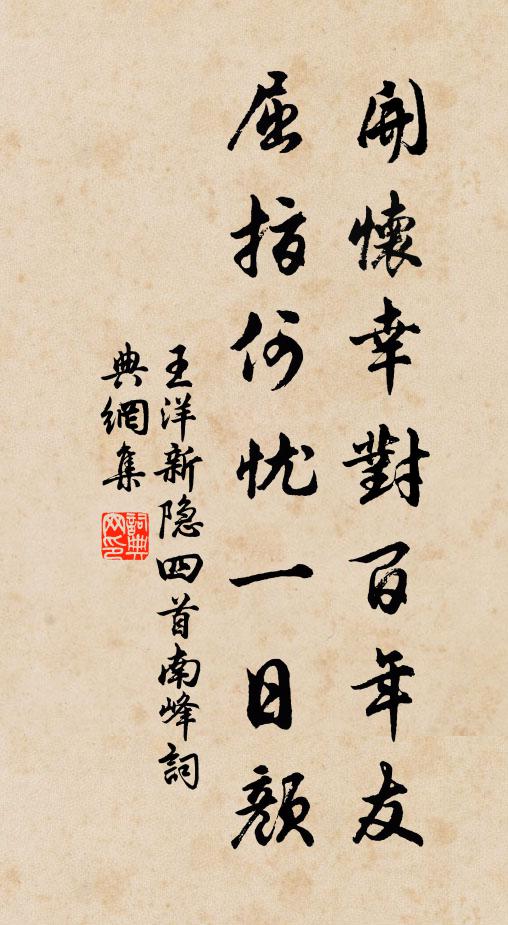 開懷幸對百年友
屈指何忧一日顏
王洋新隐四首南峰詞
典網集
詞典網印